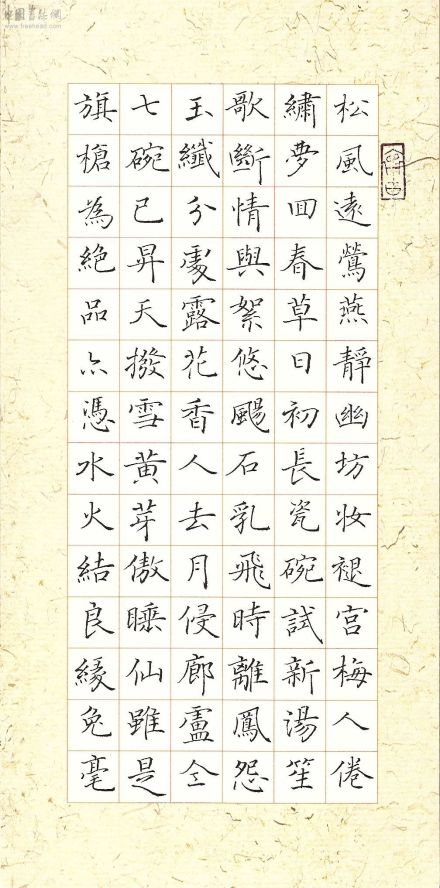 松風遠鶯燕靜幽坊妝褪宮梅人倦
繡夢回春草日初長瓷碗試新湯笙
歌斷情與絮悠颺石乳飛時離鳳怨
玉纖分處露花香人去月侵廊盧仝
七碗已昇天撥雪黃芽傲睡仙雖是
旗槍為絕品亦憑水火結良緣兔毫
www.freehead.com